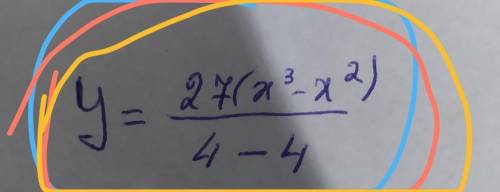 y = 27(x³-x²)
4-4